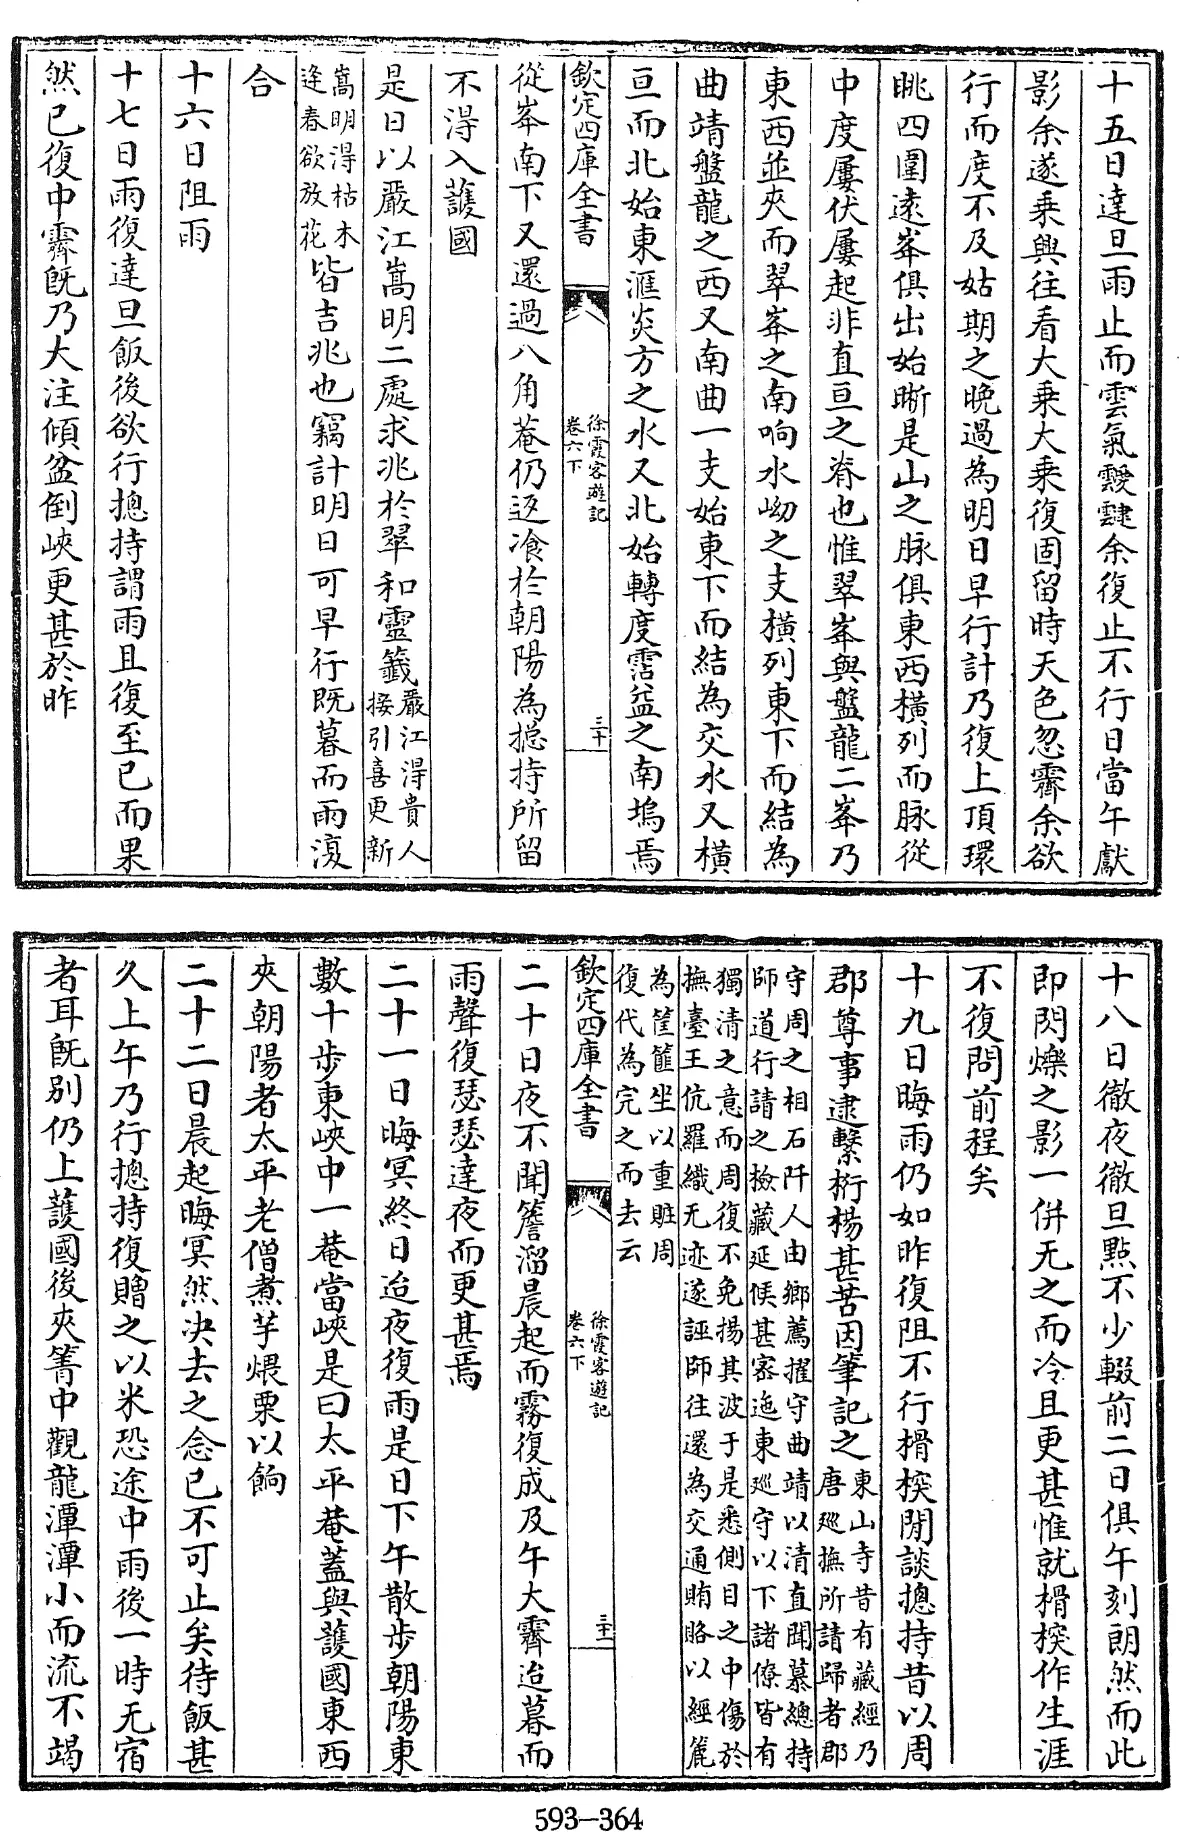 十五日達旦雨止而雲氣靉靆余復止不行日當午獻
影余遂乘興往看大乘大乘復固留時天色忽霽余欲
行而度不及姑期之晚過為明日早行計乃復上頂環
眺四圍遠峯俱出始晰是山之脉俱東西橫列而脉從
中度屢伏屢起非直亘之脊也惟翠峯與盤龍二峯乃
東西並夾而翠峯之南响水㘭之支橫列東下而結為
曲靖盤龍之西又南曲一支始東下而結為交水又橫
亘而北始東滙炎方之水又北始轉度霑益之南塢焉
欽定四庫全書
徐霞客遊記
卷六下
三十
從峯南下又還過八角菴仍返飡於朝陽為摠持所留
不得入護國
是日以嚴江嵩明二處求兆於翠和靈籤嚴江得貴人
接引喜更新
嵩明得枯木
逢春欲放花皆吉兆也竊計明日可早行既暮而雨復
合
十六日阻雨
十七日雨復達旦飯後欲行摠持謂雨且復至已而果
然已復中霽既乃大注傾盆倒峽更甚於昨
十八日徹夜徹旦點不少輟前二日俱午刻朗然而此
即閃爍之影一併无之而冷且更甚惟就榾柮作生涯
不復問前程矣
十九日晦雨仍如昨復阻不行榾柮閒談摠持昔以周
郡尊事逮繫桁楊甚苦因筆記之東山寺昔有藏經乃
唐廵撫所請歸者郡
守周之相石阡人由鄉薦擢守曲靖以清直聞慕總持
師道行請之檢藏延候甚密迤東廵守以下諸僚皆有
獨清之意而周復不免揚其波于是悉側目之中傷於
撫臺王伉羅織无迹遂誣師往還為交通賄賂以經簏
為筐篚坐以重賍周
復代為完之而去云
欽定四庫全書
徐霞客遊記
卷六下
三十一
二十日夜不聞簷溜晨起而霧復成及午大霽迨暮而
雨聲復瑟瑟達夜而更甚焉
二十一日晦冥終日迨夜復雨是日下午散步朝陽東
數十步東峽中一菴當峽是曰太平菴蓋與護國東西
夾朝陽者太平老僧煮芋煨栗以餉
二十二日晨起晦冥然决去之念已不可止矣待飯甚
久上午乃行摠持復贈之以米恐途中雨後一時无宿
者耳既別仍上護國後夾箐中觀龍潭潭小而流不竭
593-364